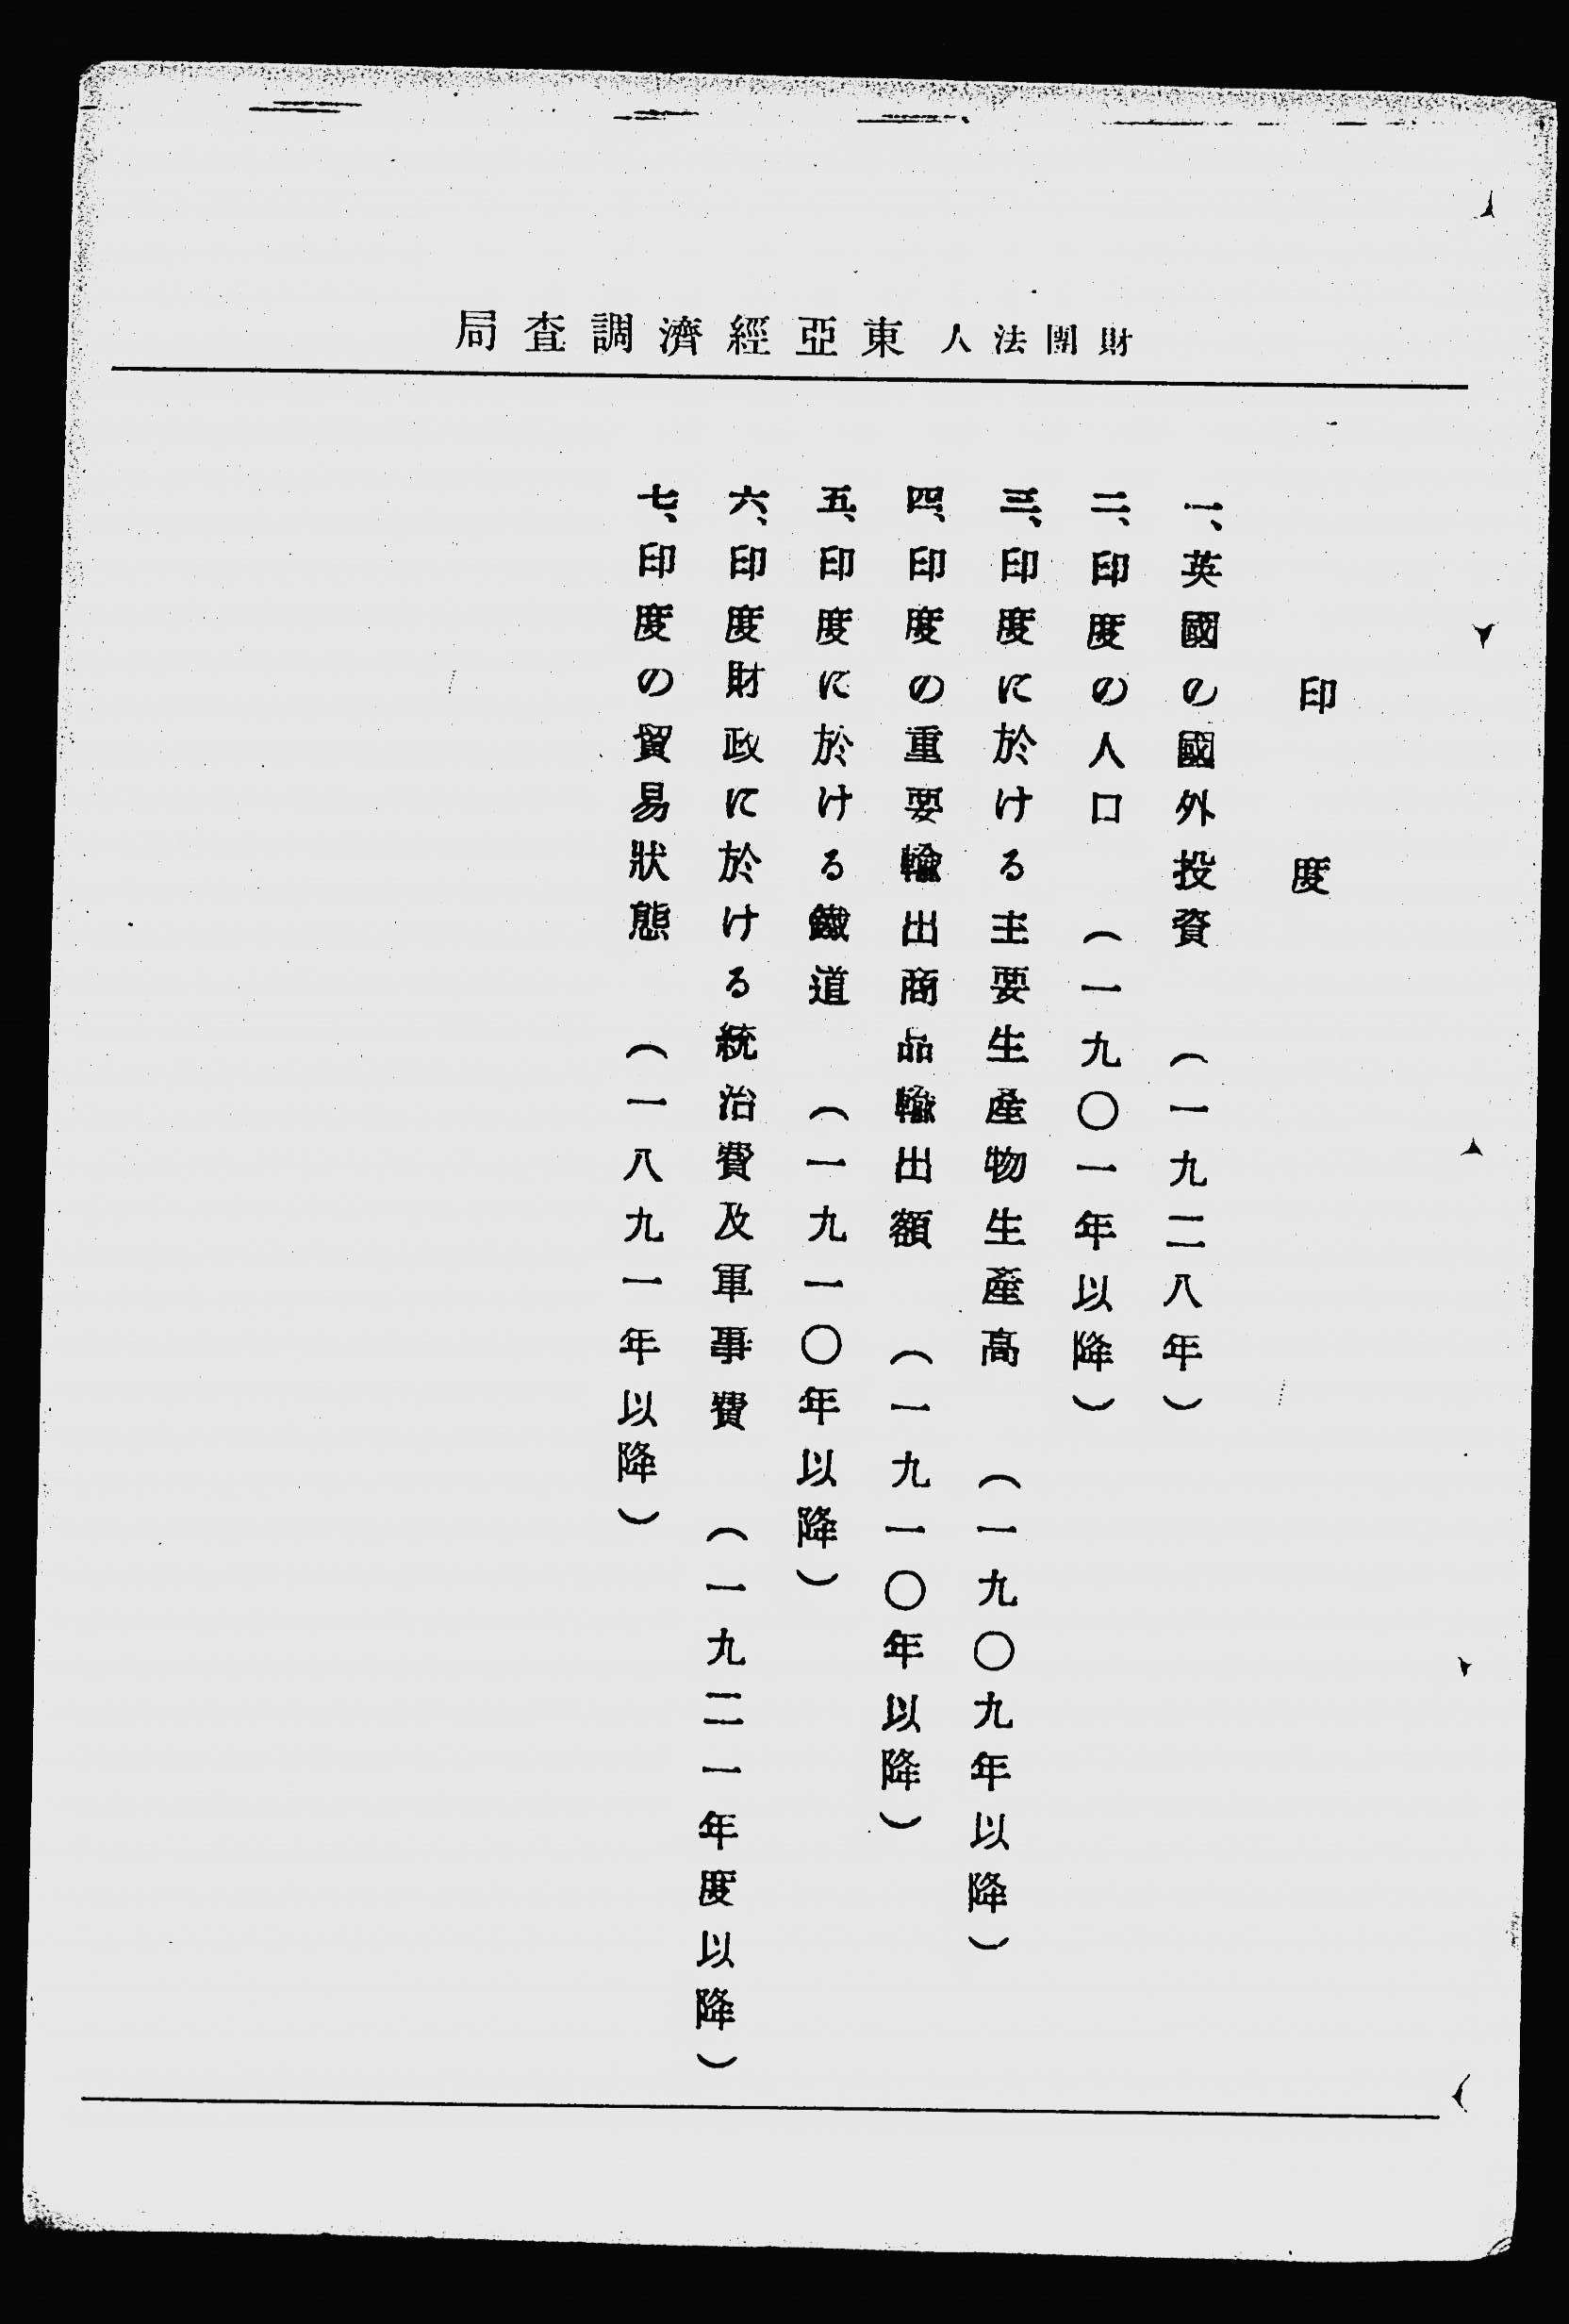 財團法人東亞經濟調査局
印度
一、英國の國外投資 （一九二八年）
二、印度の人口 （一九〇一年以降）
三、印度に於ける主要生產物生產高 （一九〇九年以降）
四、印度の重要輸出商品輸出額 （一九一〇年以降）
五、印度に於ける鐵道 （一九一〇年以降）
六、印度財政に於ける統治費及軍事費 （一九二一年度以降）
七、印度の貿易狀態 （一八九一年以降）